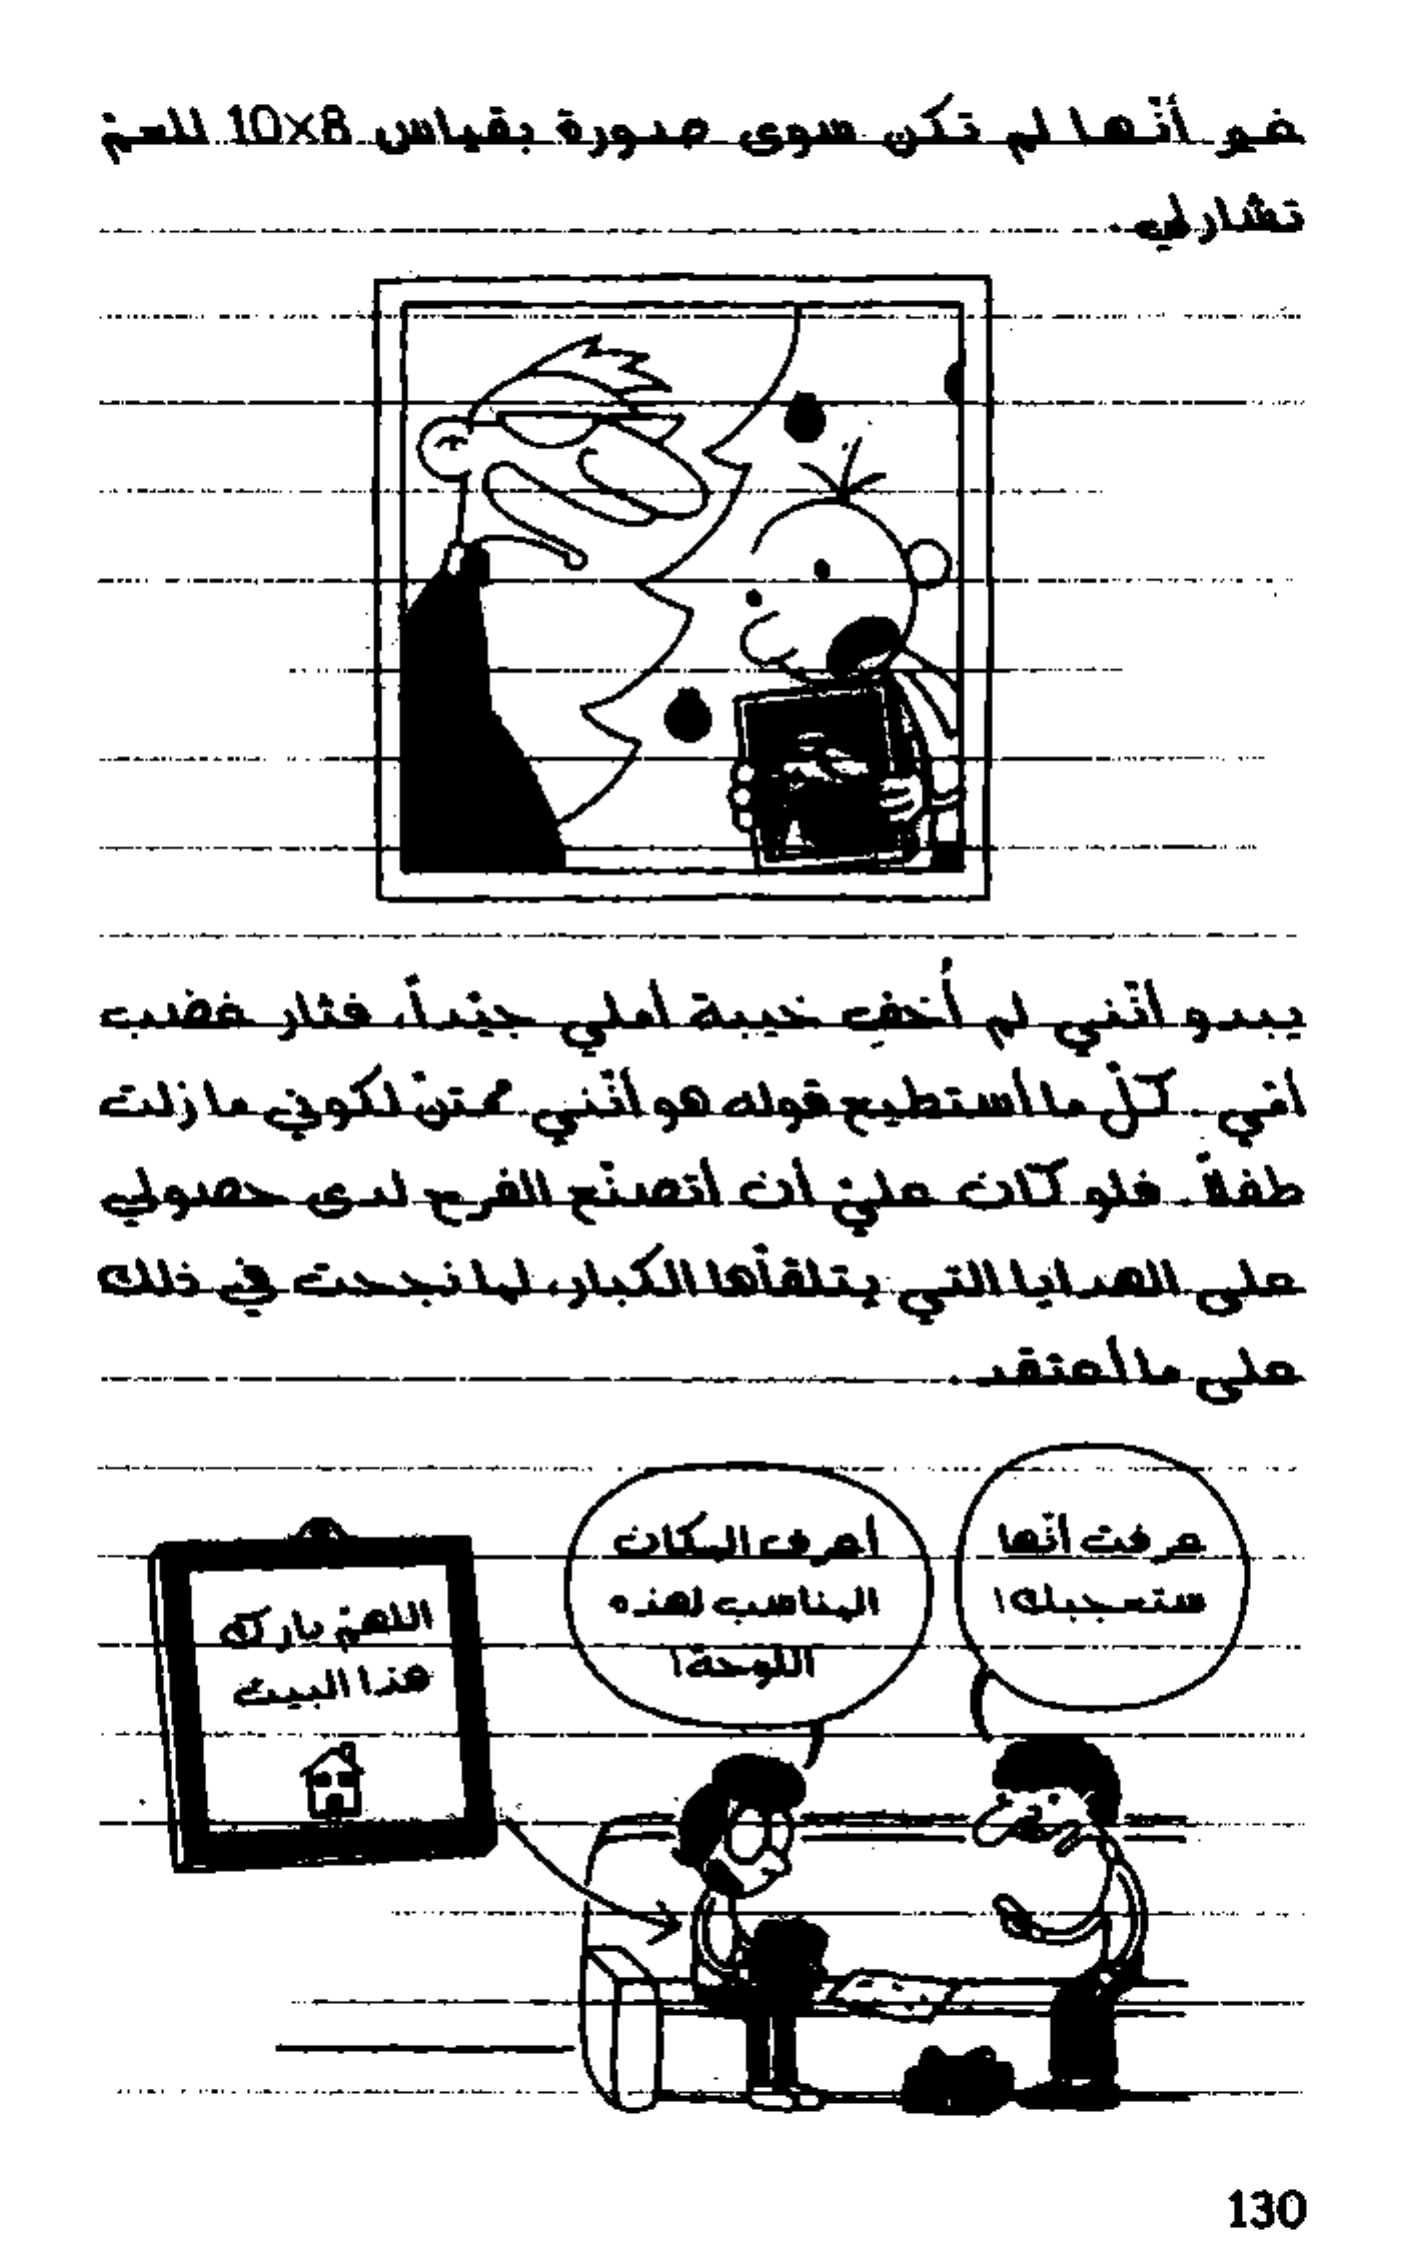 ضو أنّها لم تكن سوى صورة بقياس 8×10 للعمّ
تشارلي.
يبدو أنّني لم أُخفِ خيبة أملي جيّداً، فثار غضب
أمّي. كلّ ما أستطيع قوله هو أنّني ممتنّ لكوني ما زلت
طفلاً. فلو كان عليّ أن أتصنّع الفرح لدى حصولي
على الهدايا التي يتلقاّها الكبار، لما نجحت في ذلك
على ما أعتقد.
عرفت أنّها
ستعجبك!
أعرف المكان
المناسب لهذه
اللوحة!
اللهمّ بارك
هذا البيت
130